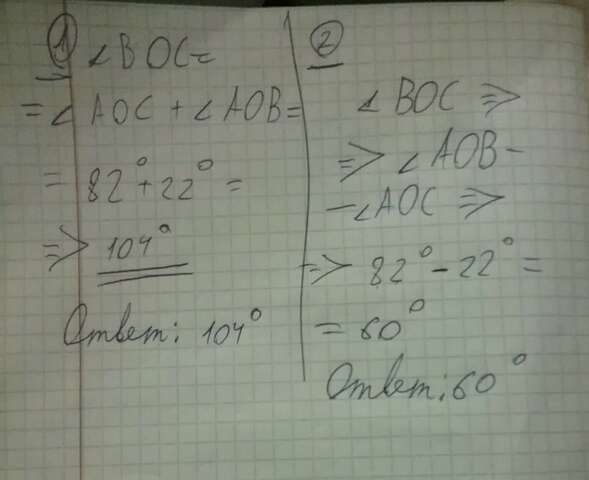 1) ∠BOC=
=∠AOC+∠AOB=
=82°+22°=
=>104°
Ответ: 104°
2
∠BOC =>
=> ∠AOB-
-∠AOC =>
=> 82°-22°=
=60°
Ответ: 60°